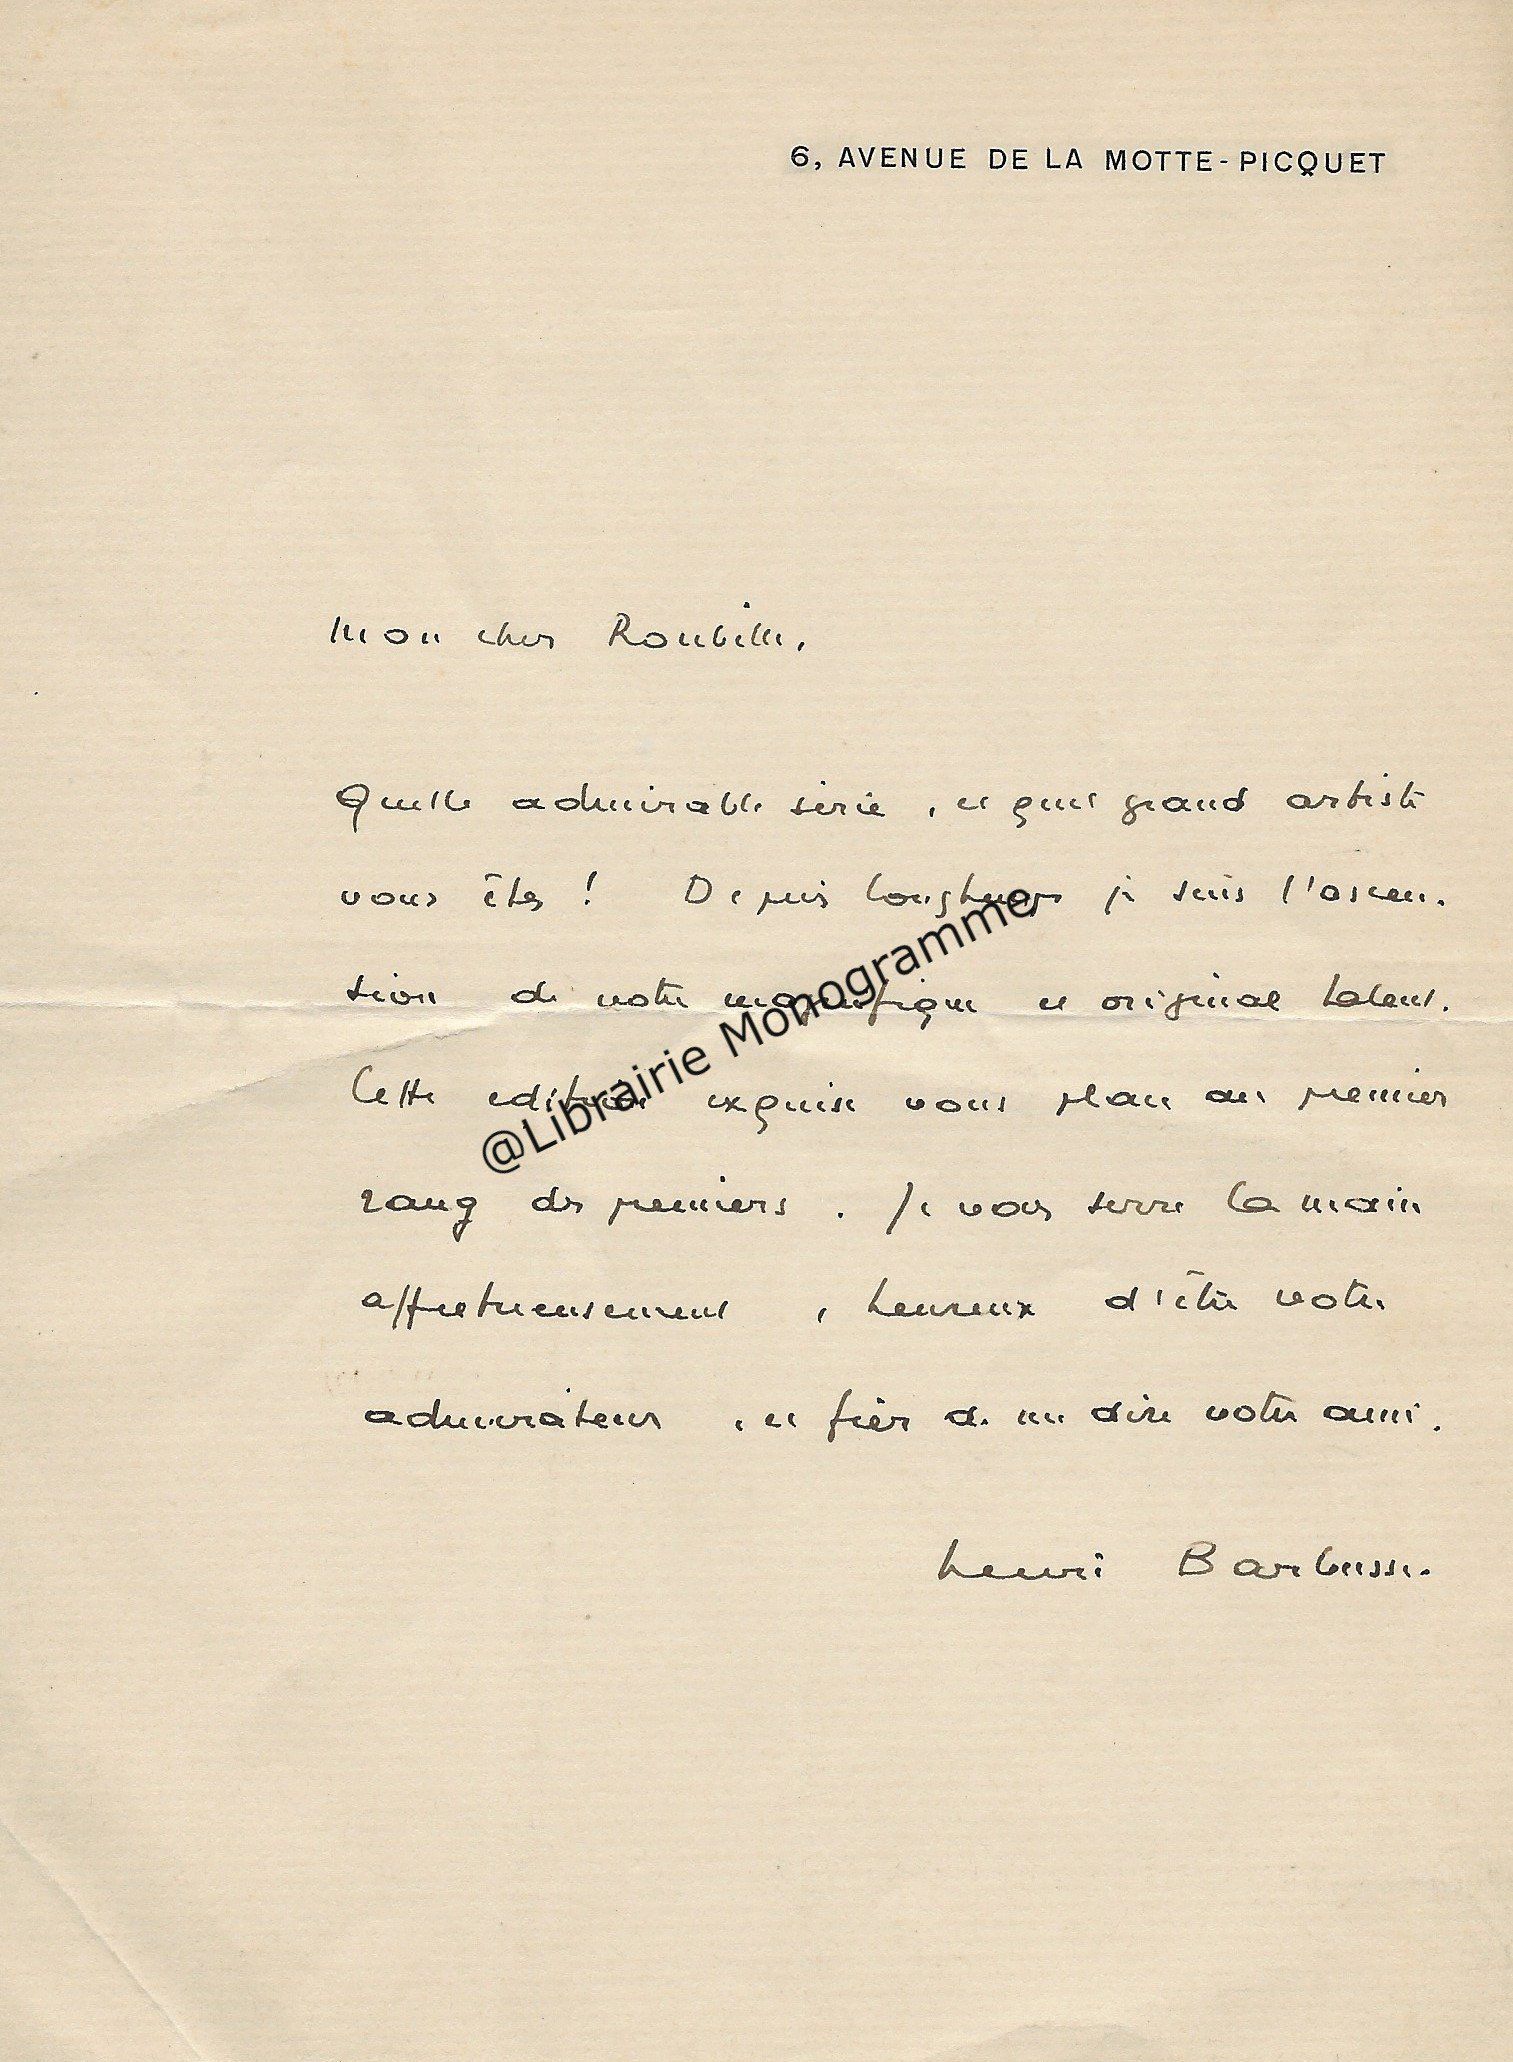 6, AVENUE DE LA MOTTE-PICQUET
Mon cher Roubille,
Quelle admirable série, et quel grand artiste
vous êtes ! Depuis longtemps je suis l'ascen-
sion de votre magnifique et original talent.
Cette édition exquise vous place au premier
rang des premiers. Je vous serre la main
affectueusement, heureux d'être votre
admirateur, et fier de me dire votre ami.
Henri Barbusse.
@Librairie Monogramme